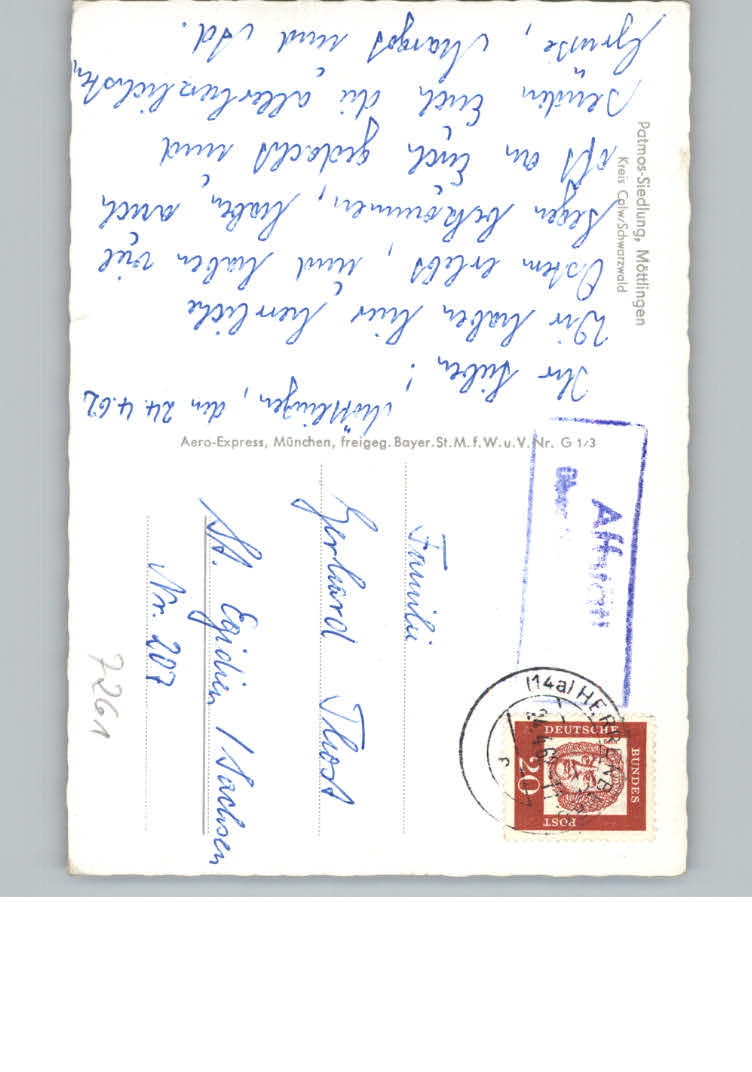 Möttlingen, den 24.4.62
Ihr Lieben!
Wir haben hier herrliche
Ostern erlebt, und haben viel
Segen bekommen, haben auch
oft an Euch gedacht und
senden Euch die allerherzlichsten
Grüsse, Margot und Ad.
Patmos-Siedlung, Möttlingen
Kreis Calw/Schwarzwald
Aero-Express, München, freigeg. Bayer.St.M.f.W.u.V.Nr. G 1/3
Familie
Gerhard Thost
St. Egidien / Sachsen
Nr. 207
7261
(14a) HERRENBERG
DEUTSCHE
BUNDES
POST
20